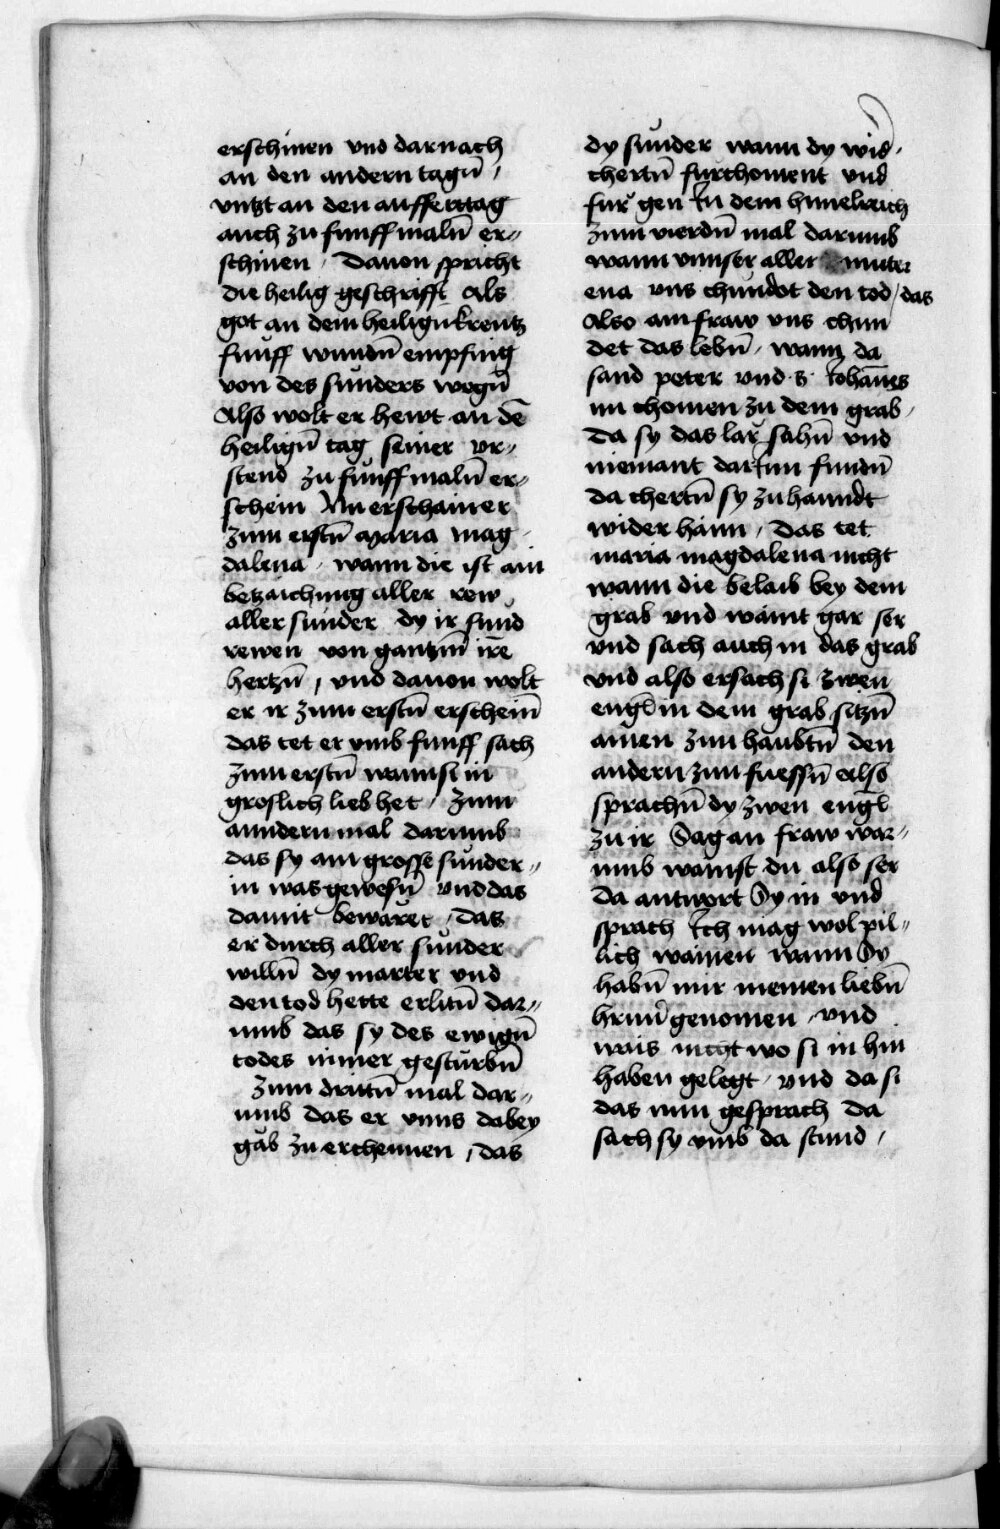 erschinen vnd darnach
an den andern tagn̄ /
vntzt an den auffertttag
auch zu funff maln̄ er⸗
schinen / Dauon spricht
die heilig geschrifft als
got an dem heilign̄ kreutz
funff wundn̄ empfing
von des sunders wegn̄
Also wolt er hewt an dē
heilign̄ tag seiner vr⸗
stend zu funff maln̄ er⸗
schein Nu erschain er
zum erstn̄ Maria mag
dalena / wann die ist ain
betzaichung aller rew
aller sunder dy ir sund
rewen von gantzm̄ irē
hertzn̄ / vnd dauon wolt
er ir zum erstn̄ erschein̄
das tet er vmb funff sach
zum erstn̄ wann si in
groslich lieb het / Zum
anndern mal darumb
das sy ain grosse sunder⸗
in was gewesn̄ vnd das
damit bewaret / das
er durch aller sunder
willn̄ dy marter vnd
den tod hette erlitn̄ dar⸗
umb das sy des ewign̄
todes nimer gesturbn̄
Zum drittn̄ mal dar⸗
umb das er vnns dabey
gab zu erchennen / das
dy sunder wann dy wid̄
chertn̄ furchoment vnd
fur gen In dem himelreich
Zum vierdn̄ mal darumb
wann vnnser aller muter
eua vns chundot den tod / das
Also ain fraw vns chun
det das lebn̄ / wann da
sand peter vnd s. Johannes
nu chomen zu dem grab /
Da sy das lar sahn̄ vnd
niemant darInn fundn̄
da chertn̄ sy zu hanndt
wider haim / Das tet
maria magdalena nicht
wann die belaib bey dem
grab vnd waint gar ser
vnd sach auch in das grab
vnd also ersach si zwen
engl in dem grab sitzn̄
ainen zun haubtn̄ den
andern zun fuessn̄ Also
sprachn̄ dy zwen engl
zu ir Sag an fraw war⸗
umb wainst du also ser
da antwort Sy in vnd
sprach Ich mag wol pil⸗
lich wainen wann Sy
habn̄ mir meinen liebn̄
hrnn̄ genomen / vnd
wais nicht wo si in hin
haben gelegt / vnd da si
das nun gesprach da
sach sy vmb da stund /